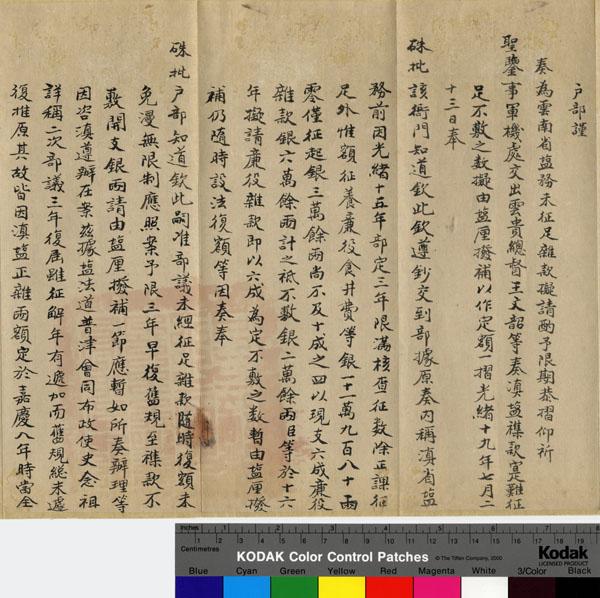 戶部謹
奏為雲南省鹽務未征足雜款擬請酌予限期恭摺仰祈
聖鑒事軍機處交出雲貴總督王文韶等奏滇鹽襍款寔難征
足不敷之數擬由鹽厘撥補以作定額一摺光緒十九年七月二
十三日奉
硃批該衙門知道欽此欽遵鈔交到部據原奏內稱滇省鹽
務前因光緒十五年部定三年限滿核查征數除正課征
足外惟額征養廉役食井費等銀一十一萬九百八十兩
零僅征起銀三萬餘兩尚不及十成之四以現支六成廉役
雜款銀六萬餘兩計之祗不敷銀二萬餘兩臣等於十六
年擬請廉役雜款即以六成為定不敷之數暫由鹽厘撥
補仍隨時設法復額等因奏奉
硃批戶部知道欽此嗣准部議未經征足雜款隨時復額未
免漫無限制應照案予限三年早復舊規至襍款不
敷開支銀兩請由鹽厘撥補一節應暫如所奏辦理等
因咨滇遵辦在案茲據鹽法道普津會同布政使史念祖
詳稱二次部議三年復屆雖征解年有遞加而舊規總未遽
復推原其故皆因滇鹽正雜兩額定於嘉慶八年時當全
inches 1 2 3 4 5 6 7 8
Centimetres 1 2 3 4 5 6 7 8 9 10 11 12 13 14 15 16 17 18 19
KODAK Color Control Patches © The Tiffen Company, 2000 Kodak
LICENSED PRODUCT
Blue Cyan Green Yellow Red Magenta White 3/Color Black